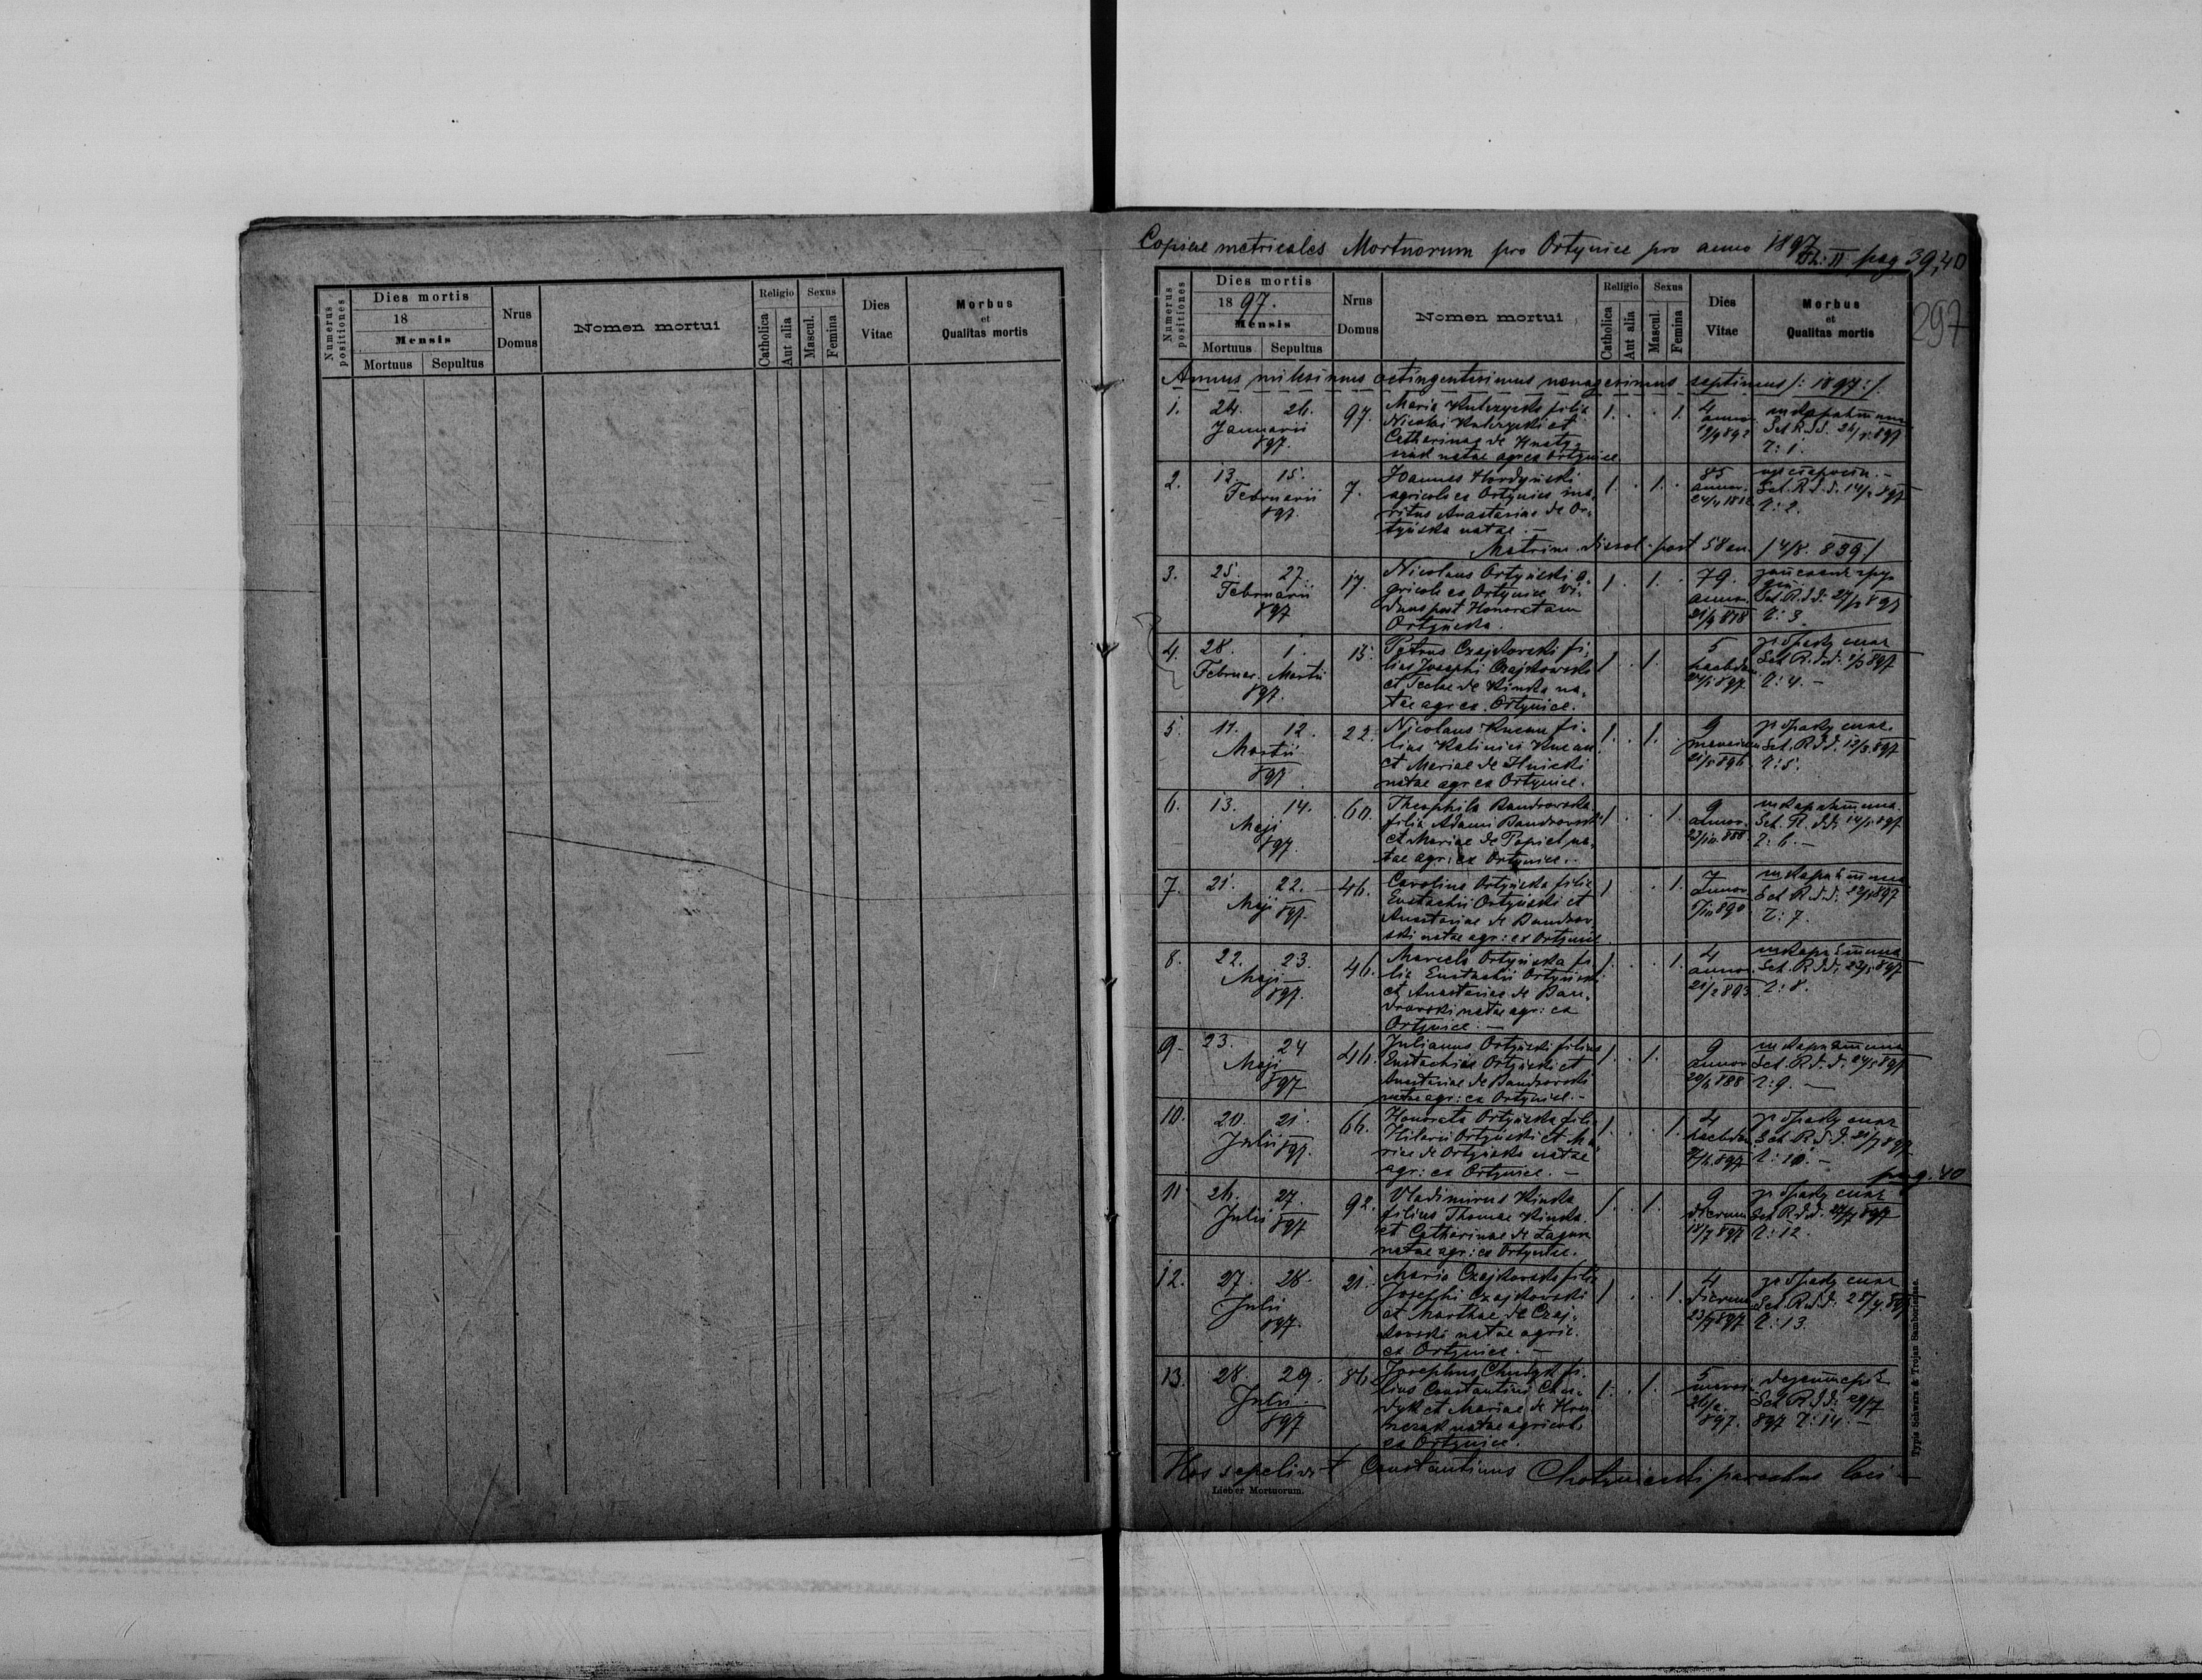 Numerus positiones
Dies mortis
18
Mensis
Mortuus Sepultus
Nrus Domus
Nomen mortui
Religio
Catholica
Aut alia
Sexus
Mascul.
Femina
Dies Vitae
Morbus
et
Qualitas mortis
Copiae metricales Mortuorum pro Ortynice pro anno 1897
II pag 39,40
297
Numerus positiones
Dies mortis
1897.
Mensis
Mortuus Sepultus
Nrus Domus
Nomen mortui
Religio
Catholica
Aut alia
Sexus
Mascul.
Femina
Dies Vitae
Morbus
et
Qualitas mortis
Annus milesimus octingentesimus nonagesimus septimus /: 1897 :/
1. 24. 26. Januarii 897. 97.
Maria Kulczycka filia
Nicolai Kulczycki et
Catharinae de
natae agr ex Ortynice
1. 1. 4 annor.
шкарлятина
Z: 1.
2. 13. 15. Februarii 897. 7.
Joannes Hordyński
agricola ex Ortynice ma-
ritus Anastasiae de Or-
tyńska natae. —
1. 1. 85 annor.
Sch. R. d. d. 14/2 897
Z: 2.
Matrim. dissol. post 58 an. / 4/8. 839 /
3. 25. 27. Februarii 897 17.
Nicolaus Ortyński a-
gricola ex Ortynice vi-
duus post Honoratam
Ortyńska.
1. 1. 79. annor.
Sch. R. d. d. 27/2 897
Z: 3.
4. 28. 1. Februar. Martii 897. 15.
Petrus Czajkowski fi-
lius Josephi Czajkowski
et Teclae de Kinska na-
tae agr ex Ortynice.
1. 1. 5 hebdom.
Sch R. d. d. 1/3 897
Z: 4. —
5. 11. 12. Martii 897 22.
Nicolaus Kucan fi-
lius Kalinici Kucan
et Mariae de Ilnicki
natae agr ex Ortynice.
1. 1. 9 mensium
Sch. R. d. d. 12/3 897
Z: 5.
6. 13. 14. Maji 897. 60.
Theophila Bandrowska
filia Adami Bandrowski
et Mariae de Popiel na-
tae agr: ex Ortynice.
1. 1. 9 annor.
шкарлятина
Sch. R. d. d. 14/5 897
Z: 6. —
7. 21. 22. Maji 897. 46.
Carolina Ortyńska filia
Eustachii Ortyński et
Anastasiae de Bandrow-
ski natae agr: ex Ortynice
1. 1. 7 annor.
шкарлятина
Sch R. d. d. 22/5 897
Z: 7.
8. 22. 23. Maji 897. 46.
Marcela Ortyńska fi-
lia Eustachii Ortyński
et Anastasiae de Ban-
drowski natae agr: ex
Ortynice. —
1. 1. 4 annor.
шкарлятина
Sch. R. d. d. 23/5 897
Z: 8.
9. 23. 24 Maji 897 46.
Julianus Ortyński filius
Eustachii Ortyński et
Anastasiae de Bandrowski
natae agr: ex Ortynice. —
1. 1. 9 annor
шкарлятина
Sch. R. d. d. 24/5 897
Z: 9. —
10. 20. 21. Julii 897. 66.
Honorata Ortyńska filia
Hilarii Ortyński et Ma-
riae de Ortyńska natae
agr: ex Ortynice. —
1. 1. 4 hebdom.
Sch R. d. d. 21/7 897
Z: 10. —
pag. 40
11 26. 27. Julii 897 92.
Vladimirus Kinska
filius Thomae Kinska
et Catharinae de
natae agr: ex Ortynice.
1. 1. 9 dierum 18/7 897
Sch R. d. d. 27/7 897
Z: 12.
12. 27. 28. Julii 897. 21.
Maria Czajkowska filia
Josephi Czajkowski
et Marthae de Czaj-
kowski natae agric.
ex Ortynice. —
1. 1. 4 dierum 23/7 897
Sch. R. d. d. 28/7 897
Z: 13.
13. 28. 29. Julii 897 86.
Josephus Chudyk fi-
lius Constantini Chu-
dyk et Mariae de
natae agricol.
ex Ortynice.
1. 1. 5
Sch R. d. d. 29/7
897 Z: 14. —
Hos sepelivit Constantinus parochus loci —
Lieber Mortuorum.
Typis Schwarz & Trojan Samboriensae.